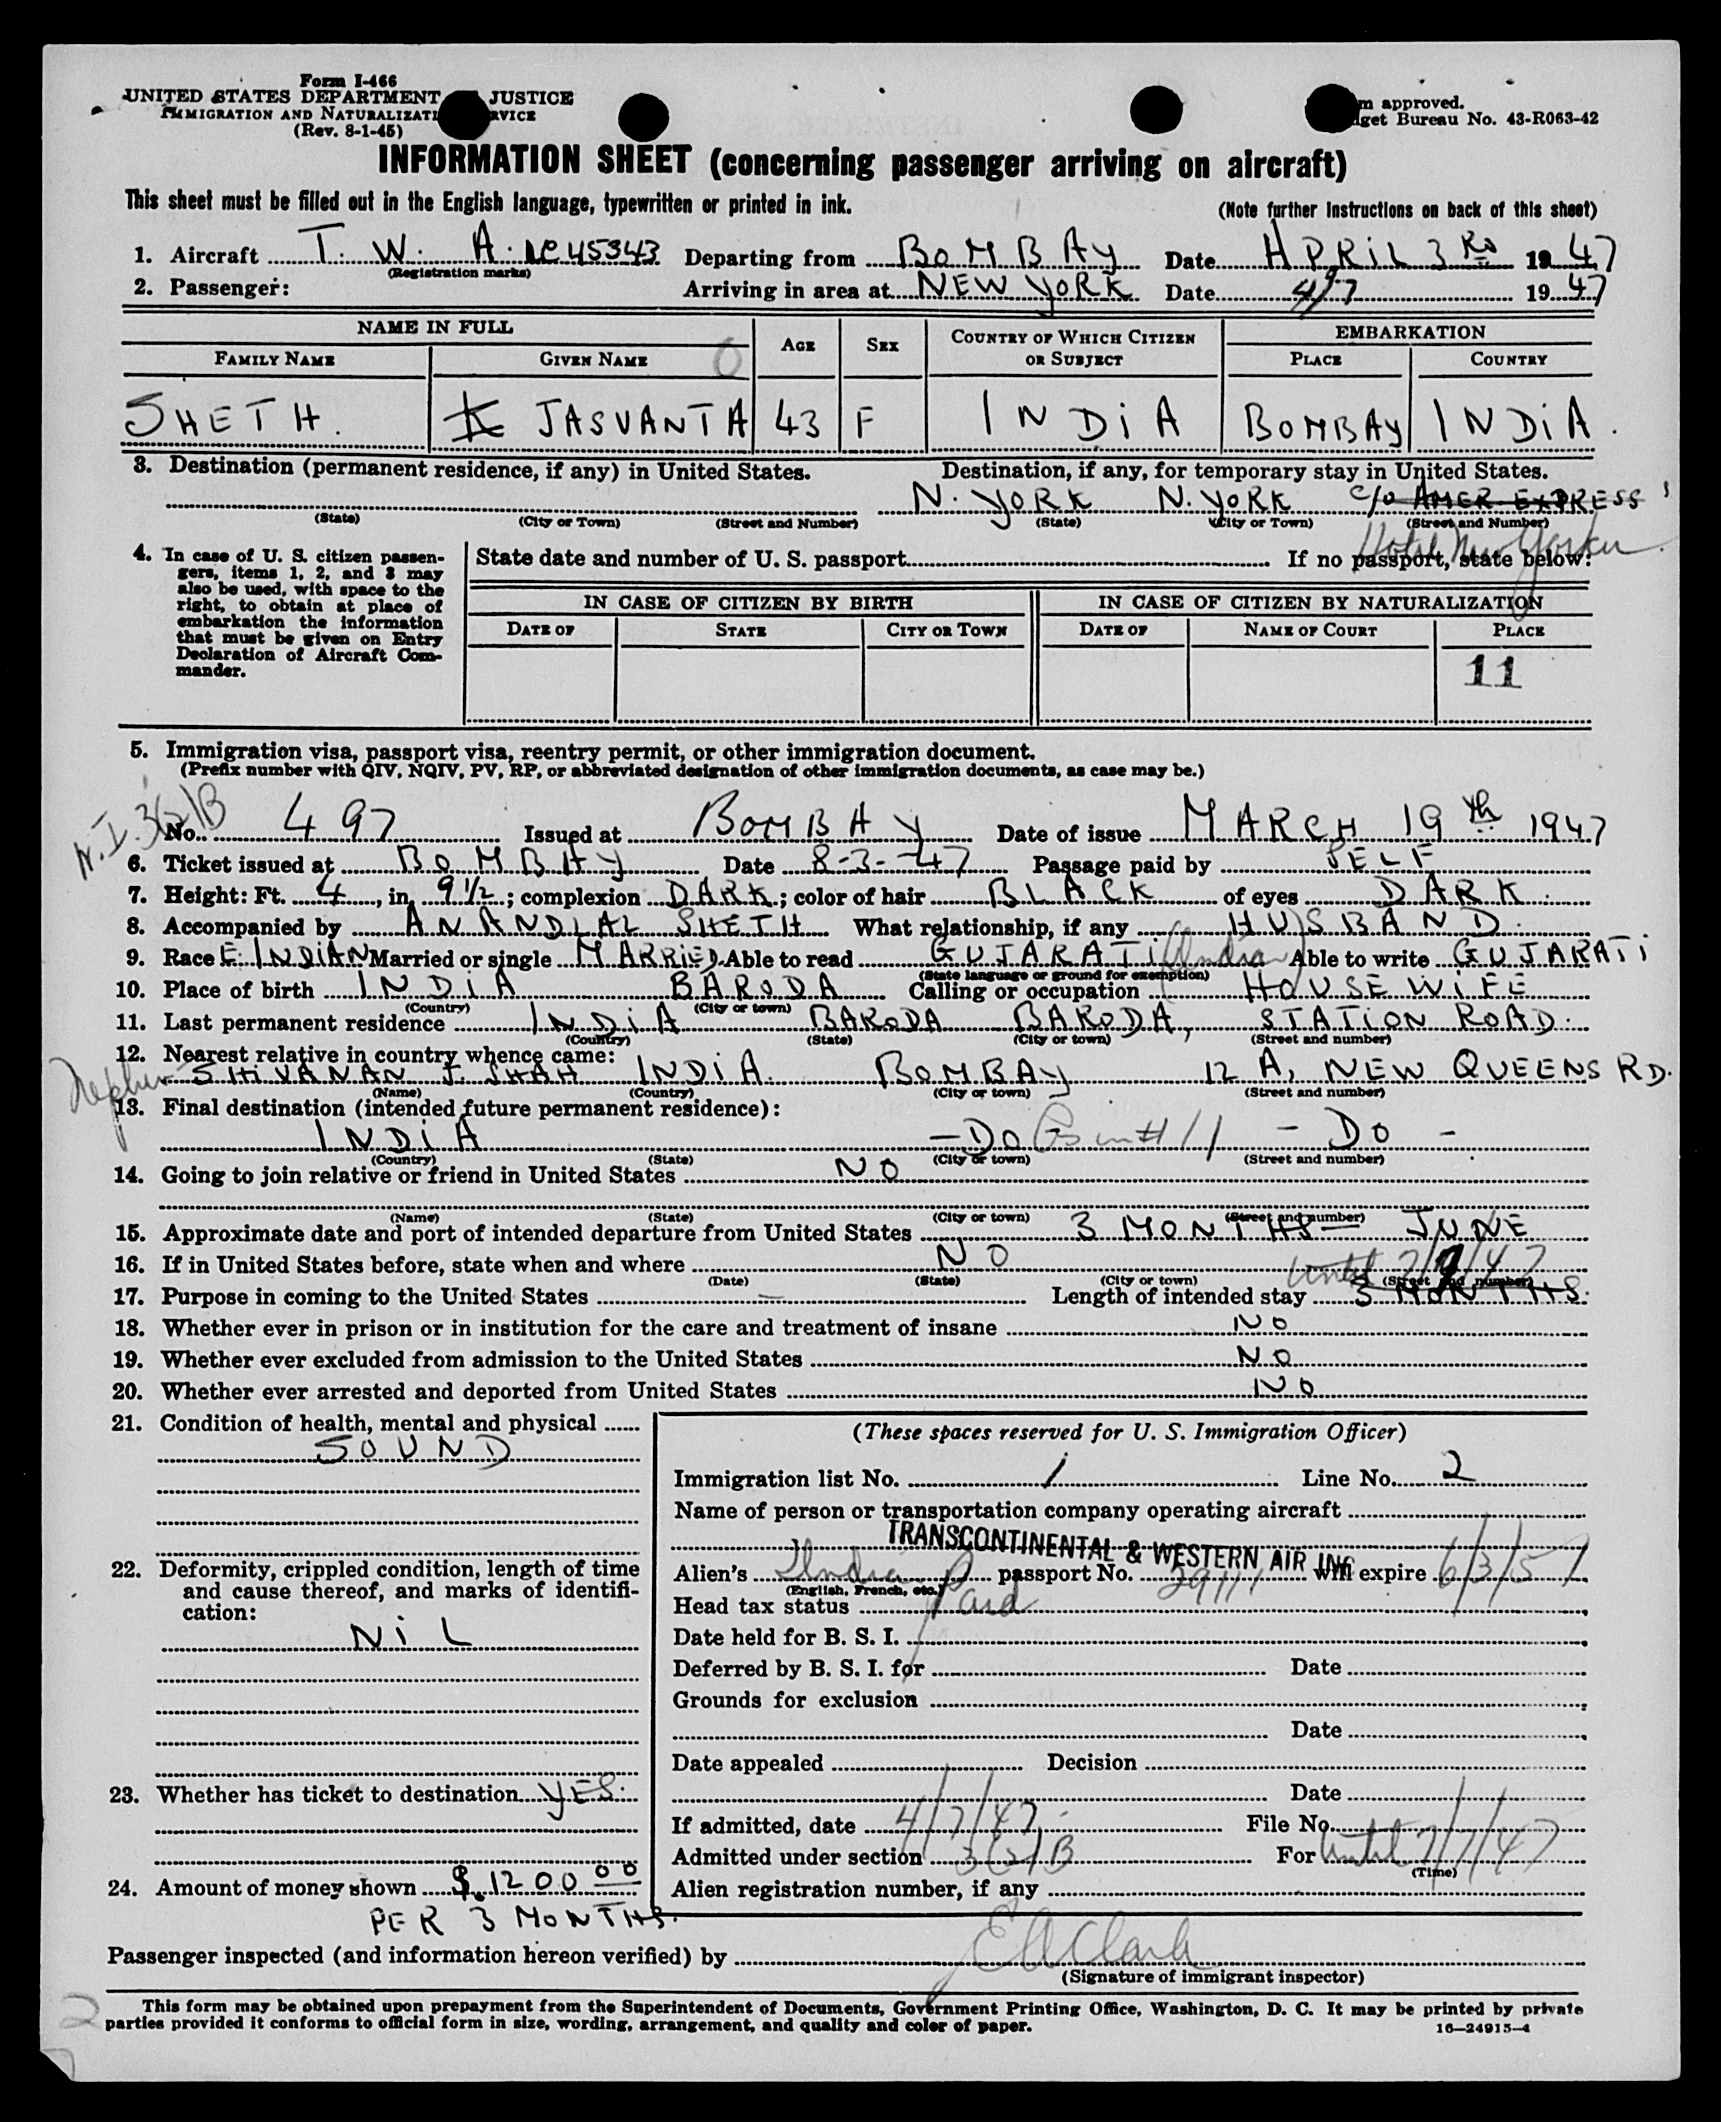 Form I-466
UNITED STATES DEPARTMENT JUSTICE
IMMIGRATION AND NATURALIZATI RVICE
(Rev. 8-1-45)
m approved.
get Bureau No. 43-R063-42
INFORMATION SHEET (concerning passenger arriving on aircraft)
This sheet must be filled out in the English language, typewritten or printed in ink.
(Note further instructions on back of this sheet)
1. Aircraft T. W. A. NC 45343 Departing from BOMBAY Date APRIL 3 RD 1947
(Registration marks)
2. Passenger: Arriving in area at NEW YORK Date 4/7 1947
NAME IN FULL AGE SEX COUNTRY OF WHICH CITIZEN OR SUBJECT EMBARKATION
FAMILY NAME GIVEN NAME PLACE COUNTRY
SHETH. JASVANTA 43 F INDIA BOMBAY INDIA.
3. Destination (permanent residence, if any) in United States. Destination, if any, for temporary stay in United States.
N. YORK N. YORK c/o AMER EXPRESS
(State) (City or Town) (Street and Number) (State) (City or Town) (Street and Number)
Hotel New Yorker.
4. In case of U. S. citizen passengers, items 1, 2, and 3 may also be used, with space to the right, to obtain at place of embarkation the information that must be given on Entry Declaration of Aircraft Commander.
State date and number of U. S. passport If no passport, state below:
IN CASE OF CITIZEN BY BIRTH IN CASE OF CITIZEN BY NATURALIZATION
DATE OF STATE CITY OR TOWN DATE OF NAME OF COURT PLACE
11
5. Immigration visa, passport visa, reentry permit, or other immigration document.
(Prefix number with QIV, NQIV, PV, RP, or abbreviated designation of other immigration documents, as case may be.)
N.I. 3(2)B
No. 497 Issued at BOMBAY Date of issue MARCH 19th 1947
6. Ticket issued at BOMBAY Date 8-3-47 Passage paid by SELF
7. Height: Ft. 4, in. 9 1/2; complexion DARK; color of hair BLACK of eyes DARK.
8. Accompanied by ANANDLAL SHETH What relationship, if any HUSBAND.
9. Race E. INDIAN Married or single MARRIED Able to read GUJARATI (Indian) Able to write GUJARATI
(State language or ground for exemption)
10. Place of birth INDIA BARODA Calling or occupation HOUSEWIFE
(Country) (City or town)
11. Last permanent residence INDIA BARODA BARODA, STATION ROAD.
(Country) (State) (City or town) (Street and number)
12. Nearest relative in country whence came:
Nephew SHIVANAN J. SHAH INDIA. BOMBAY 12 A, NEW QUEENS RD.
(Name) (Country) (City or town) (Street and number)
13. Final destination (intended future permanent residence):
INDIA - DO - DO -
(Country) (State) (City or town) (Street and number)
14. Going to join relative or friend in United States NO
(Name) (State) (City or town) (Street and number)
15. Approximate date and port of intended departure from United States 3 MONTHS - JUNE
16. If in United States before, state when and where NO
(Date) (State) (City or town) (Street and number)
until 7/7/47
17. Purpose in coming to the United States — Length of intended stay 3 MONTHS.
18. Whether ever in prison or in institution for the care and treatment of insane NO
19. Whether ever excluded from admission to the United States NO
20. Whether ever arrested and deported from United States NO
21. Condition of health, mental and physical
SOUND
22. Deformity, crippled condition, length of time and cause thereof, and marks of identification:
NIL
23. Whether has ticket to destination YES.
24. Amount of money shown $.1200 00
PER 3 MONTHS.
(These spaces reserved for U. S. Immigration Officer)
Immigration list No. 1 Line No. 2
Name of person or transportation company operating aircraft
TRANSCONTINENTAL & WESTERN AIR INC
Alien's India passport No. 29111 will expire 6/3/51
(English, French, etc.)
Head tax status Paid
Date held for B. S. I.
Deferred by B. S. I. for Date
Grounds for exclusion
Date
Date appealed Decision
Date
If admitted, date 4/7/47 File No.
Admitted under section 3(2)B For until 7/7/47
(Time)
Alien registration number, if any
Passenger inspected (and information hereon verified) by E A Clark
(Signature of immigrant inspector)
This form may be obtained upon prepayment from the Superintendent of Documents, Government Printing Office, Washington, D. C. It may be printed by private
parties provided it conforms to official form in size, wording, arrangement, and quality and color of paper.
16—24915-4
2